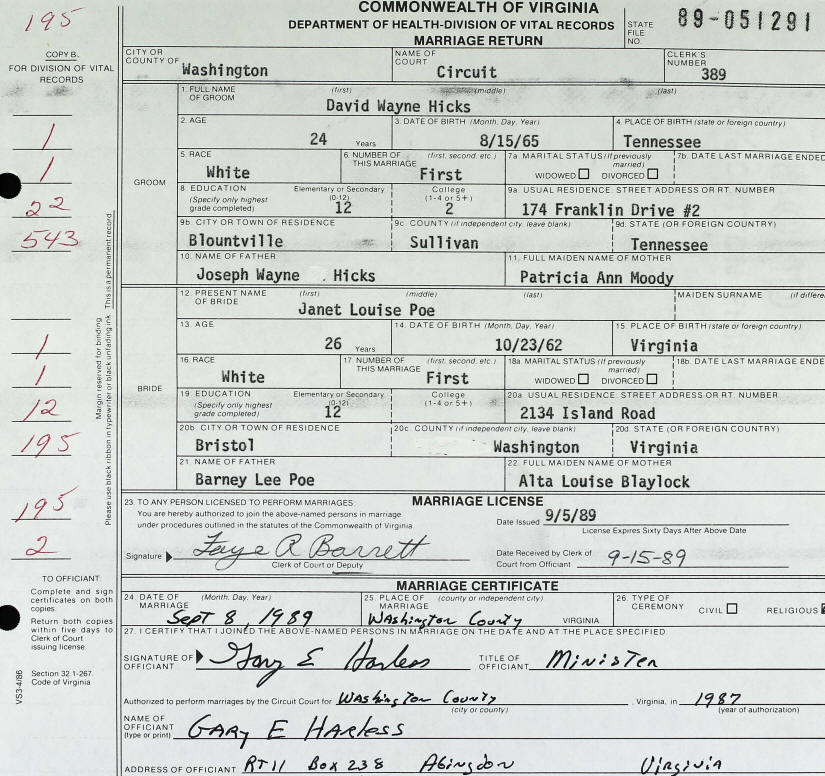 195
COMMONWEALTH OF VIRGINIA
DEPARTMENT OF HEALTH-DIVISION OF VITAL RECORDS
MARRIAGE RETURN
STATE FILE NO. 89-051291
COPY B.
FOR DIVISION OF VITAL RECORDS
CITY OR COUNTY OF Washington
NAME OF COURT Circuit
CLERK'S NUMBER 389
GROOM
1. FULL NAME OF GROOM (first) (middle) (last)
David Wayne Hicks
2. AGE 24 Years
3. DATE OF BIRTH (Month, Day, Year) 8/15/65
4. PLACE OF BIRTH (state or foreign country) Tennessee
1
5. RACE White
6. NUMBER OF THIS MARRIAGE (first, second, etc.) First
7a. MARITAL STATUS (If previously married) WIDOWED DIVORCED
7b. DATE LAST MARRIAGE ENDED
1
8. EDUCATION (Specify only highest grade completed) Elementary or Secondary (0-12) 12 College (1-4 or 5+) 2
9a. USUAL RESIDENCE: STREET ADDRESS OR RT. NUMBER 174 Franklin Drive #2
22
9b. CITY OR TOWN OF RESIDENCE Blountville
9c. COUNTY (if independent city, leave blank) Sullivan
9d. STATE (OR FOREIGN COUNTRY) Tennessee
543
10. NAME OF FATHER Joseph Wayne Hicks
11. FULL MAIDEN NAME OF MOTHER Patricia Ann Moody
BRIDE
12. PRESENT NAME OF BRIDE (first) (middle) (last)
Janet Louise Poe
MAIDEN SURNAME (if differe
13. AGE 26 Years
14. DATE OF BIRTH (Month, Day, Year) 10/23/62
15. PLACE OF BIRTH (state or foreign country) Virginia
1
16. RACE White
17. NUMBER OF THIS MARRIAGE (first, second, etc.) First
18a. MARITAL STATUS (If previously married) WIDOWED DIVORCED
18b. DATE LAST MARRIAGE ENDE
1
19. EDUCATION (Specify only highest grade completed) Elementary or Secondary (0-12) 12 College (1-4 or 5+)
20a. USUAL RESIDENCE: STREET ADDRESS OR RT. NUMBER 2134 Island Road
12
20b. CITY OR TOWN OF RESIDENCE Bristol
20c. COUNTY (if independent city, leave blank) Washington
20d. STATE (OR FOREIGN COUNTRY) Virginia
195
21. NAME OF FATHER Barney Lee Poe
22. FULL MAIDEN NAME OF MOTHER Alta Louise Blaylock
Margin reserved for binding
Please use black ribbon in typewriter or black unfading ink. This is a permanent record.
195
2
MARRIAGE LICENSE
23. TO ANY PERSON LICENSED TO PERFORM MARRIAGES:
You are hereby authorized to join the above-named persons in marriage
under procedures outlined in the statutes of the Commonwealth of Virginia.
Date Issued 9/5/89
License Expires Sixty Days After Above Date
Signature Faye R Barrett
Clerk of Court or Deputy
Date Received by Clerk of Court from Officiant 9-15-89
TO OFFICIANT:
Complete and sign certificates on both copies.
Return both copies within five days to Clerk of Court issuing license.
Section 32.1-267.
Code of Virginia
VS3-4/86
MARRIAGE CERTIFICATE
24. DATE OF MARRIAGE (Month, Day, Year) Sept 8, 1989
25. PLACE OF MARRIAGE (county or independent city) Washington County VIRGINIA
26. TYPE OF CEREMONY CIVIL RELIGIOUS
27. I CERTIFY THAT I JOINED THE ABOVE-NAMED PERSONS IN MARRIAGE ON THE DATE AND AT THE PLACE SPECIFIED.
SIGNATURE OF OFFICIANT Gary E Harless
TITLE OF OFFICIANT Minister
Authorized to perform marriages by the Circuit Court for Washington County, Virginia, in 1987
(city or county) (year of authorization)
NAME OF OFFICIANT (type or print) GARY E HARLESS
ADDRESS OF OFFICIANT RT 11 Box 238 Abingdon Virginia